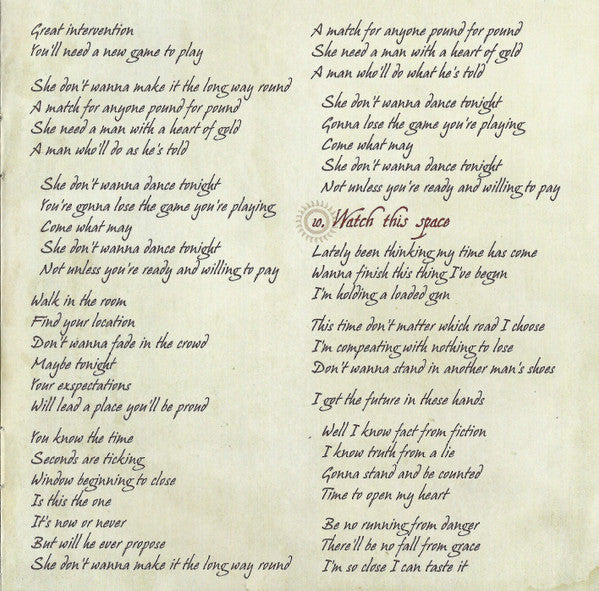 Great intervention
You'll need a new game to play
She don't wanna make it the long way round
A match for anyone pound for pound
She need a man with a heart of gold
A man who'll do as he's told
She don't wanna dance tonight
You're gonna lose the game you're playing
Come what may
She don't wanna dance tonight
Not unless you're ready and willing to pay
Walk in the room
Find your location
Don't wanna fade in the crowd
Maybe tonight
Your exspectations
Will lead a place you'll be proud
You know the time
Seconds are ticking
Window beginning to close
Is this the one
It's now or never
But will he ever propose
She don't wanna make it the long way round
A match for anyone pound for pound
She need a man with a heart of gold
A man who'll do what he's told
She don't wanna dance tonight
Gonna lose the game you're playing
Come what may
She don't wanna dance tonight
Not unless you're ready and willing to pay
10. Watch this space
Lately been thinking my time has come
Wanna finish this thing I've begun
I'm holding a loaded gun
This time don't matter which road I choose
I'm compeating with nothing to lose
Don't wanna stand in another man's shoes
I got the future in these hands
Well I know fact from fiction
I know truth from a lie
Gonna stand and be counted
Time to open my heart
Be no running from danger
There'll be no fall from grace
I'm so close I can taste it